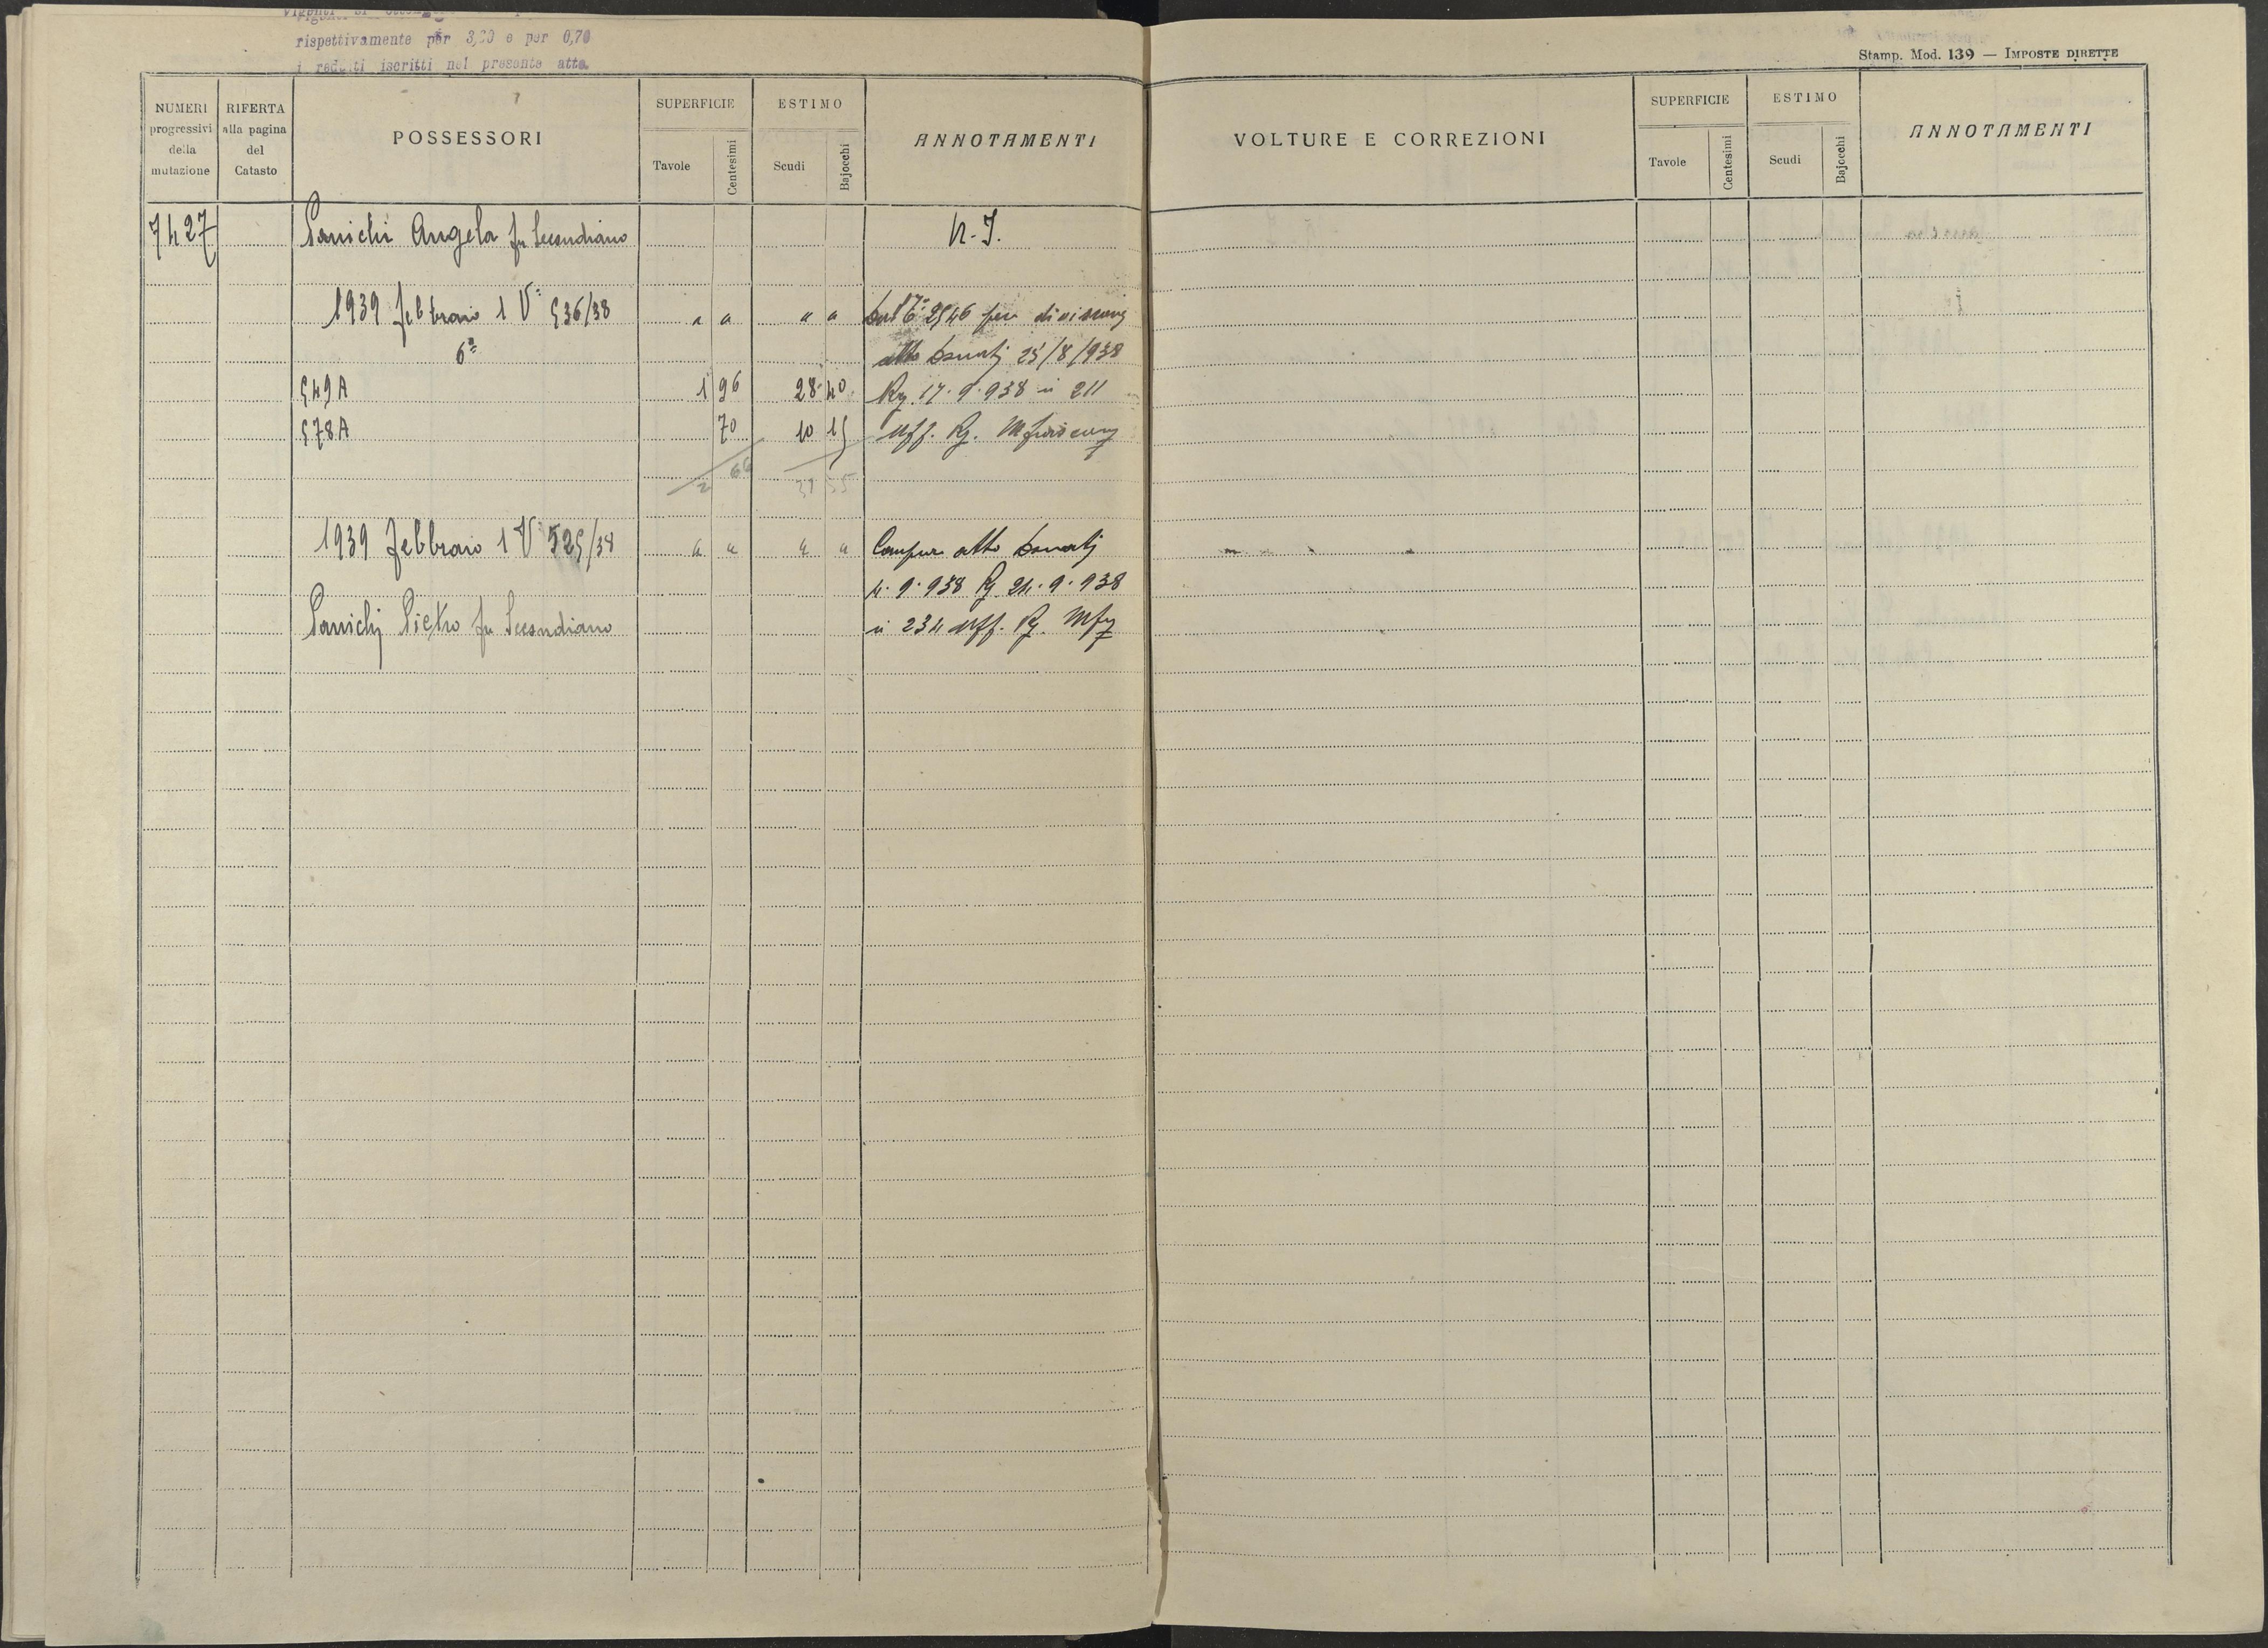 rispettivamente per 3,20 e per 0,70
i redditi iscritti nel presente atto
Stamp. Mod. 139 — IMPOSTE DIRETTE
NUMERI progressivi della mutazione
RIFERTA alla pagina del Catasto
POSSESSORI
SUPERFICIE
Tavole Centesimi
ESTIMO
Scudi Bajocchi
ANNOTAMENTI
VOLTURE E CORREZIONI
SUPERFICIE
Tavole Centesimi
ESTIMO
Scudi Bajocchi
ANNOTAMENTI
7427 Panichi Angela fu Secondiano N. I.
1939 febbraio 1 V° 536/38 " " " " 2546 per divisione
6ª atto Donati 25/8/938
549 A 1 96 28 40 Rg. 17.9.938 n 211
578 A 70 10 15 Uff. Rg.
2 66 37 55
1939 febbraio 1 V° 525/38 " " " " Compra atto Donati
4.9.938 Rg 24.9.938
Panichi Pietro fu Secondiano n 234 Uff. Rg.